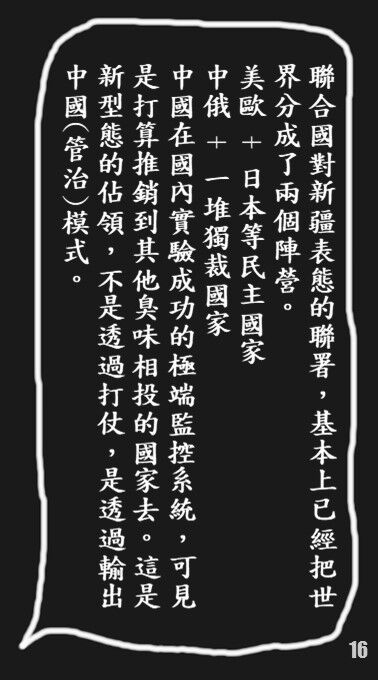 聯合國對新疆表態的聯署，基本上已經把世
界分成了兩個陣營。
美歐 + 日本等民主國家
中俄 + 一堆獨裁國家
中國在國內實驗成功的極端監控系統，可見
是打算推銷到其他臭味相投的國家去。這是
新型態的佔領，不是透過打仗，是透過輸出
中國(管治)模式。
16